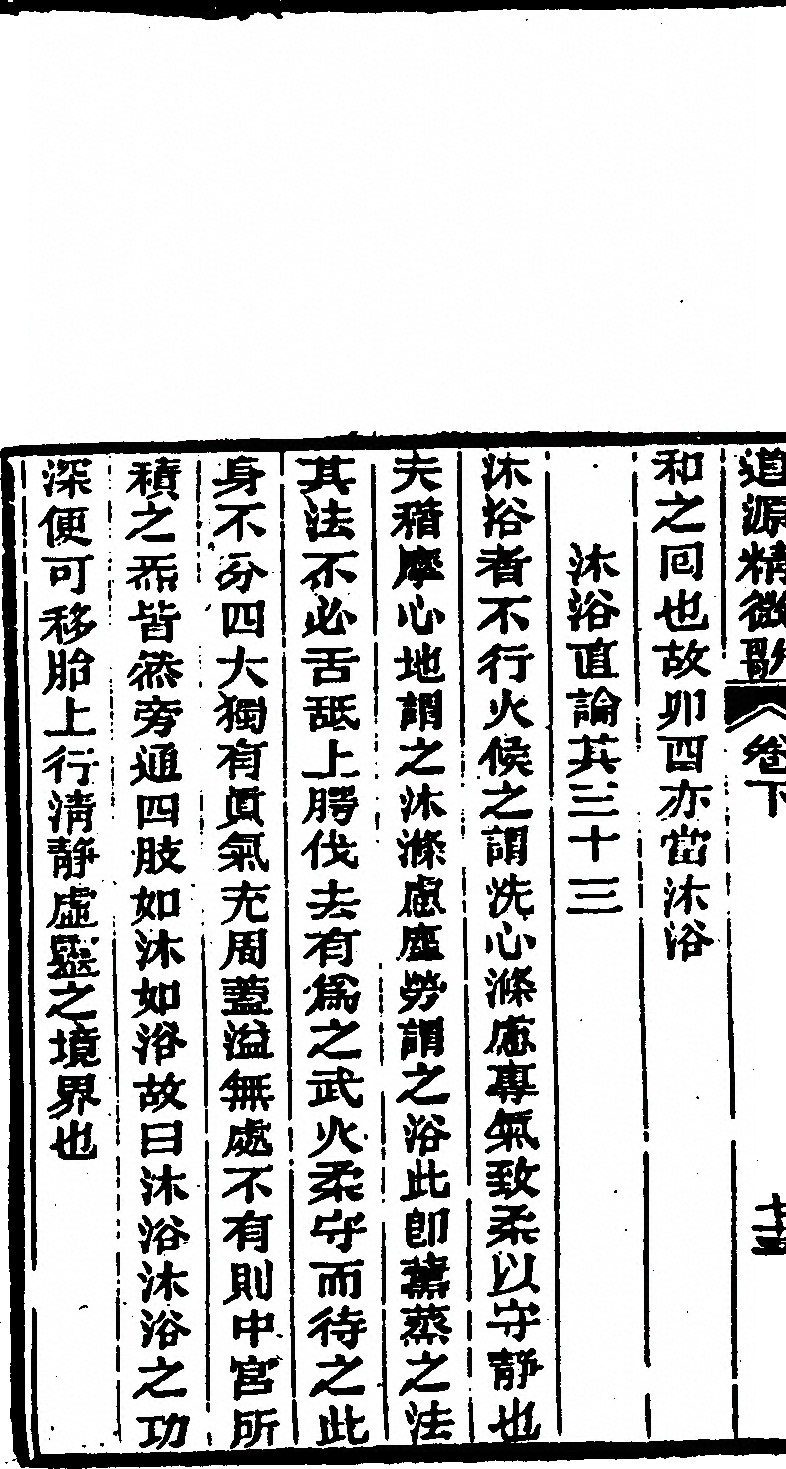 道源精微歌 卷下 十三
和之囘也故卯酉亦當沐浴
沐浴直論其三十三
沐浴者不行火候之謂洗心滌慮專氣致柔以守靜也
夫稭摩心地謂之沐滌慮塵勞謂之浴此卽薰蒸之法
其法不必舌舐上腭伐去有爲之武火柔守而待之此
身不分四大獨有眞氣充周蓋溢無處不有則中宮所
積之炁皆從旁通四肢如沐如浴故曰沐浴沐浴之功
深便可移胎上行淸靜虛靈之境界也